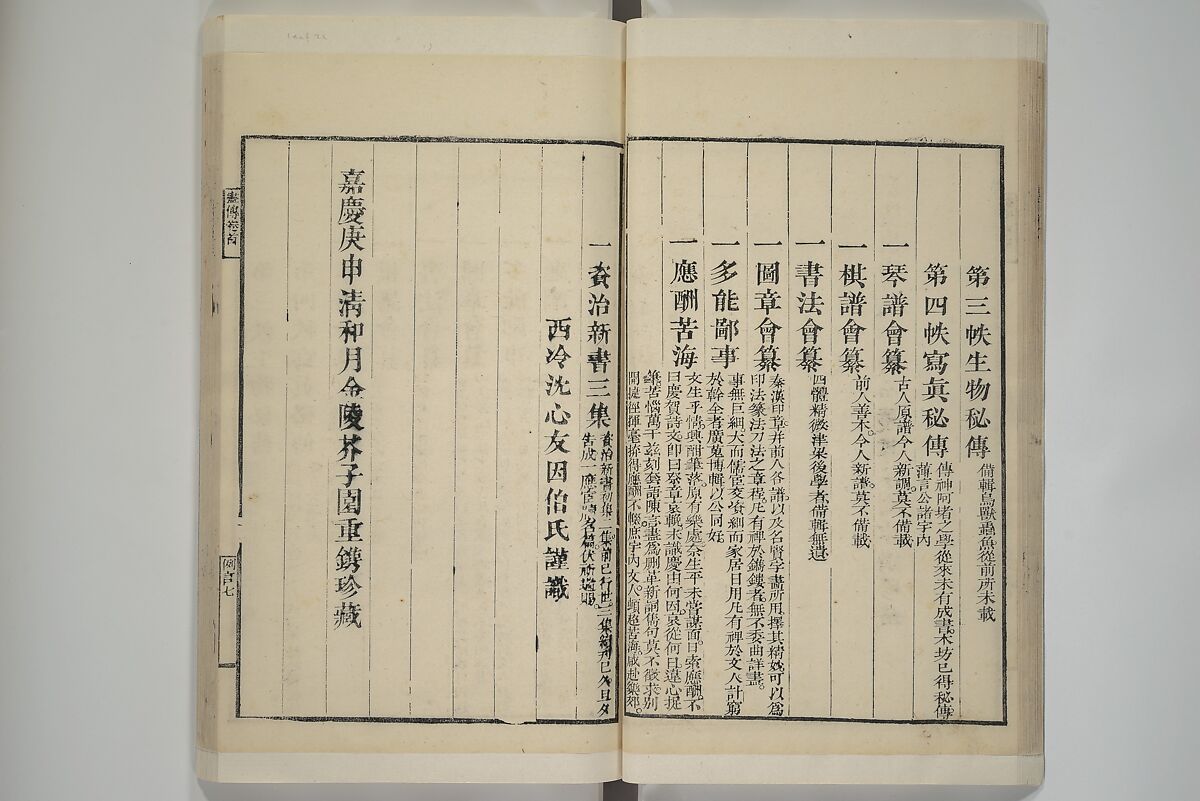 第三帙生物秘傳 備輯鳥獸蟲魚從前所未載
第四帙寫眞秘傳 傳神阿堵之學從來未有成書本坊已得秘傳
薄言公諸宇內
一琴譜會纂 古人原譜今人新調莫不備載
一棋譜會纂 前人善本今人新譜莫不備載
一書法會纂 四體精微津梁後學者備輯無遺
一圖章會纂 秦漢印章并前人各譜以及名賢字畫所用擇其精妙可以爲
印法篆法刀法之章程凡有裨於鐫鏤者無不委曲詳盡
一多能鄙事 事無巨細大而儒臣交資細而家居日用凡有裨於文人計窮
於幹全者廣蒐博輯以公同好
一應酬苦海 文生乎情興酣筆落原有樂處余生平未嘗謀面日索應酬不
曰慶賀詩文卽曰祭章哀輓未識慶由何因哀從何且違心捉
鎌苦惱萬千玆刻套語陳言盡爲刪革新詞雋句莫不徵求別
開捷徑揮毫拚得應酬不輟庶宇內文人頓超苦海咸赴樂郊
一資治新書三集 資治新書初集二集前已行世三集續刊已久旦夕
告成一應官
西泠沈心友因伯氏謹識
嘉慶庚申清和月金陵芥子園重鐫珍藏
畫傳卷首
例言七